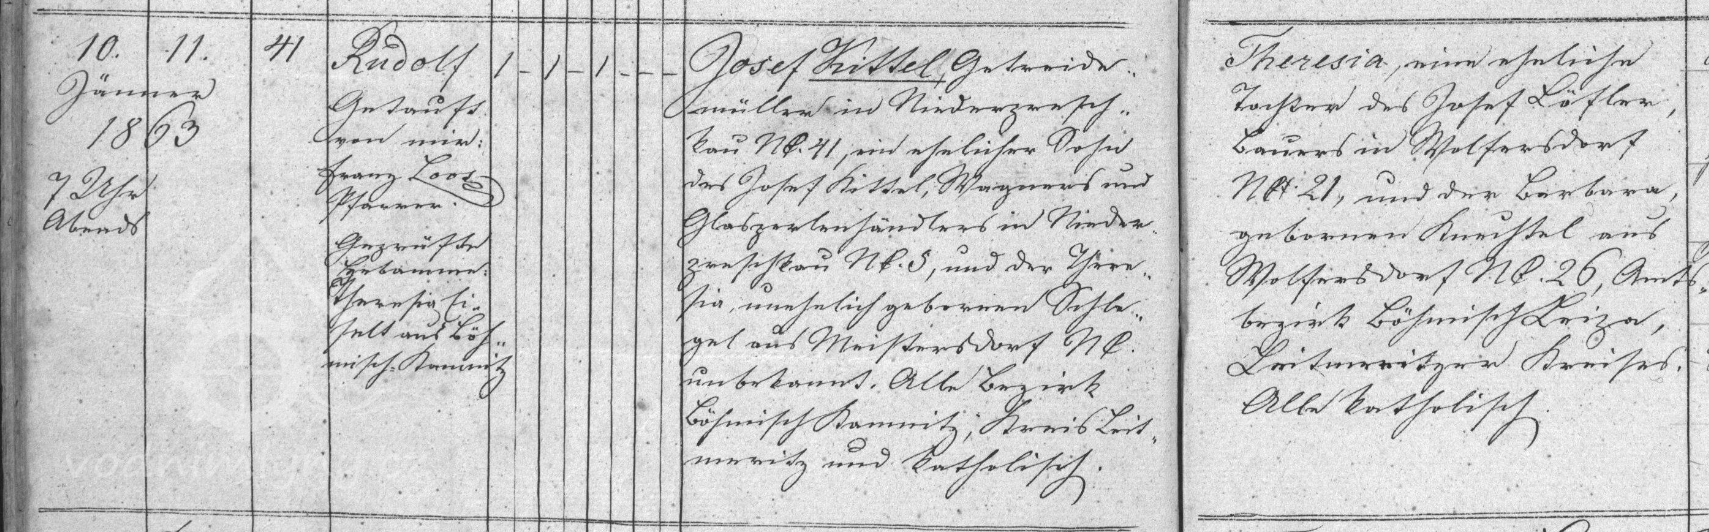 10. 11. 41
Jänner
1863
7 Uhr
Abends
Rudolf
Getauft
von mir:
Franz Loos
Pfarrer.
Geprüfte
Hebamme:
Theresia Ei-
selt aus Böh-
misch-Kamnitz
1 - 1 - 1 - - -
Josef Kittel, Getreide-
müller in Niederpresch-
kau NC. 41, ein ehelicher Sohn
des Josef Kittel, Wagners und
Glasperlenhändlers in Nieder-
preschkau NC. 5, und der There-
sia, unehelich gebornen Schle-
gel aus Meistersdorf NC.
unbekannt. Alle Bezirk
Böhmisch Kamnitz, Kreis Leit-
meritz und katholisch.
Theresia, eine eheliche
Tochter des Josef Löfler,
Bauers in Wolfersdorf
NC. 21, und der Barbara,
gebornen Knechtel aus
Wolfersdorf NC. 26, Amts-
bezirk Böhmisch Leipa,
Leitmeritzer Kreises.
Alle katholisch.